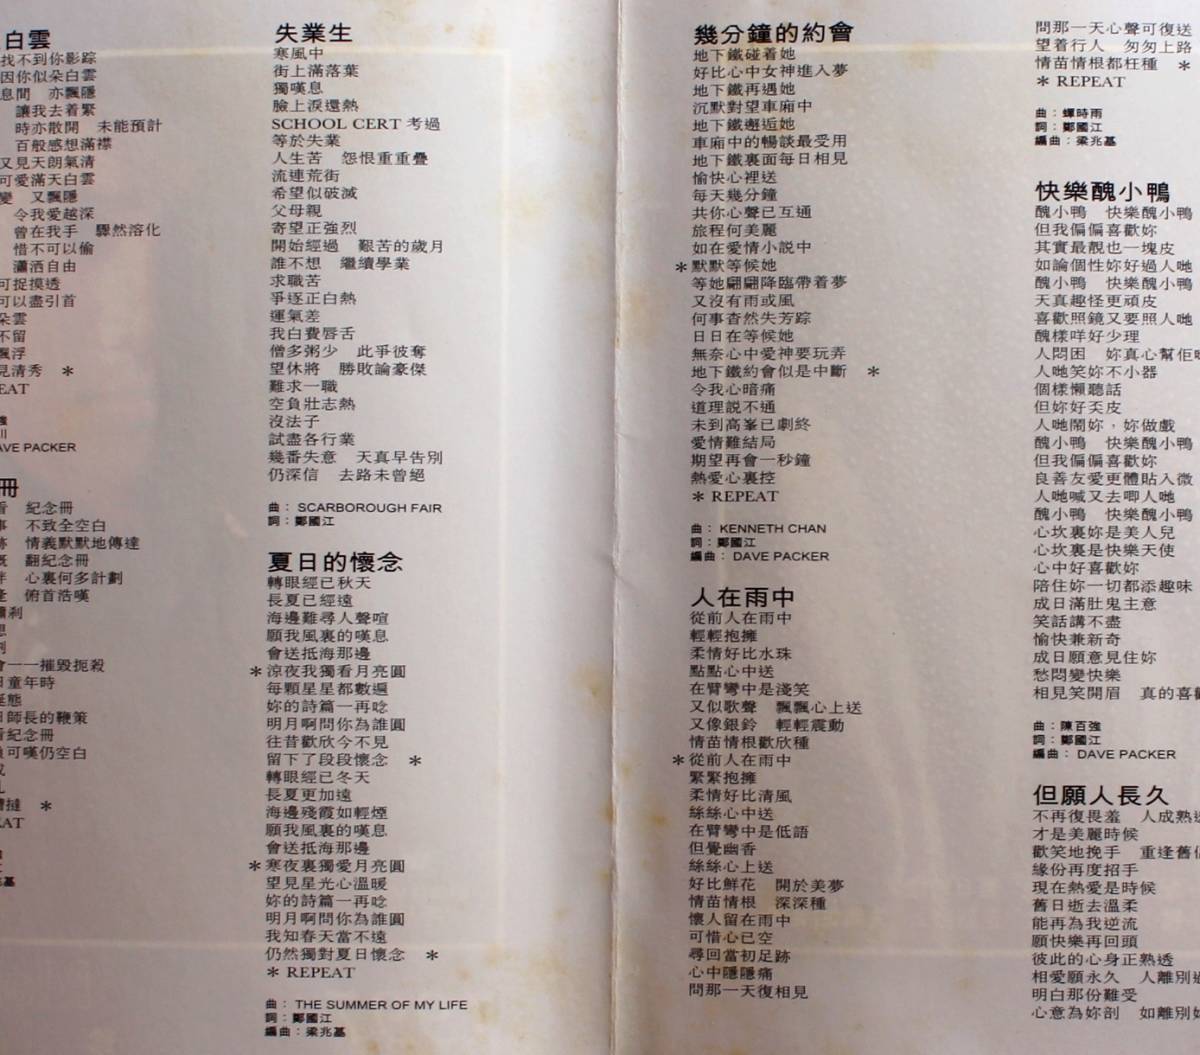 白雲
找不到你影踪
因你似朵白雲
息間　亦飄隱
讓我去着緊
時亦散開　未能預計
百般感想滿襟
又見天朗氣清
可愛滿天白雲
變　又飄隱
令我愛越深
曾在我手　驟然溶化
惜不可以偷
瀟洒自由
可捉摸透
可以盡引首
朵雲
不留
飄浮
見清秀　＊
EAT
強
川
AVE PACKER
冊
看　紀念冊
事　不致全空白
跡　情義默默地傳達
既　翻紀念冊
半　心裏何多計劃
逢　俯首浩嘆
想
會一一摧毀扼殺
日童年時
態
日師長的鞭策
看紀念冊
可嘆仍空白
撻　＊
EAT
基
失業生
寒風中
街上滿落葉
獨嘆息
臉上淚還熱
SCHOOL CERT 考過
等於失業
人生苦　怨恨重重疊
流連荒街
希望似破滅
父母親
寄望正強烈
開始經過　艱苦的歲月
誰不想　繼續學業
求職苦
爭逐正白熱
運氣差
我白費唇舌
僧多粥少　此爭彼奪
望休將　勝敗論豪傑
難求一職
空負壯志熱
沒法子
試盡各行業
幾番失意　天真早告別
仍深信　去路未曾絕
曲：SCARBOROUGH FAIR
詞：鄭國江
夏日的懷念
轉眼經已秋天
長夏已經遠
海邊難尋人聲喧
願我風裏的嘆息
會送抵海那邊
＊涼夜我獨看月亮圓
每顆星星都數遍
妳的詩篇一再唸
明月啊問你為誰圓
往昔歡欣今不見
留下了段段懷念　＊
轉眼經已冬天
長夏更加遠
海邊殘霞如輕煙
願我風裏的嘆息
會送抵海那邊
＊寒夜裏獨愛月亮圓
望見星光心溫暖
妳的詩篇一再唸
明月啊問你為誰圓
我知春天當不遠
仍然獨對夏日懷念　＊
＊ REPEAT
曲：THE SUMMER OF MY LIFE
詞：鄭國江
編曲：梁兆基
幾分鐘的約會
地下鐵碰着她
好比心中女神進入夢
地下鐵再遇她
沉默對望車廂中
地下鐵邂逅她
車廂中的暢談最受用
地下鐵裏面每日相見
愉快心裡送
每天幾分鐘
共你心聲已互通
旅程何美麗
如在愛情小説中
＊默默等候她
等她翩翩降臨帶着夢
又沒有雨或風
何事杳然失芳踪
日日在等候她
無奈心中愛神要玩弄
地下鐵約會似是中斷　＊
令我心暗痛
道理説不通
未到高峯已劇終
愛情難結局
期望再會一秒鐘
熱愛心裏控
＊ REPEAT
曲：KENNETH CHAN
詞：鄭國江
編曲：DAVE PACKER
人在雨中
從前人在雨中
輕輕抱擁
柔情好比水珠
點點心中送
在臂彎中是淺笑
又似歌聲　飄飄心上送
又像銀鈴　輕輕震動
情苗情根歡欣種
＊從前人在雨中
緊緊抱擁
柔情好比清風
絲絲心中送
在臂彎中是低語
但覺幽香
絲絲心上送
好比鮮花　開於美夢
情苗情根　深深種
懷人留在雨中
可惜心已空
尋回當初足跡
心中隱隱痛
問那一天復相見
問那一天心聲可復送
望着行人　匆匆上路
情苗情根都枉種　＊
＊ REPEAT
曲：蟬時雨
詞：鄭國江
編曲：梁兆基
快樂醜小鴨
醜小鴨　快樂醜小鴨
但我偏偏喜歡妳
其實最靚也一塊皮
如論個性妳好過人哋
醜小鴨　快樂醜小鴨
天真趣怪更頑皮
喜歡照鏡又要照人哋
醜樣咩好少理
人悶困　妳真心幫佢
人哋笑妳不小器
個樣懶聽話
但妳好奀皮
人哋鬧妳，妳做戲
醜小鴨　快樂醜小鴨
但我偏偏喜歡妳
良善友愛更體貼入微
人哋喊又去唧人哋
醜小鴨　快樂醜小鴨
心坎裏妳是美人兒
心坎裏是快樂天使
心中好喜歡妳
陪住妳一切都添趣味
成日滿肚鬼主意
笑話講不盡
愉快兼新奇
成日願意見住妳
愁悶變快樂
相見笑開眉　真的喜歡
曲：陳百強
詞：鄭國江
編曲：DAVE PACKER
但願人長久
不再復畏羞　人成熟
才是美麗時候
歡笑地挽手　重逢舊
緣份再度招手
現在熱愛是時候
舊日逝去溫柔
能再為我逆流
願快樂再回頭
彼此的心身正熟透
相愛願永久　人離別
明白那份難受
心意為妳剖　如離別